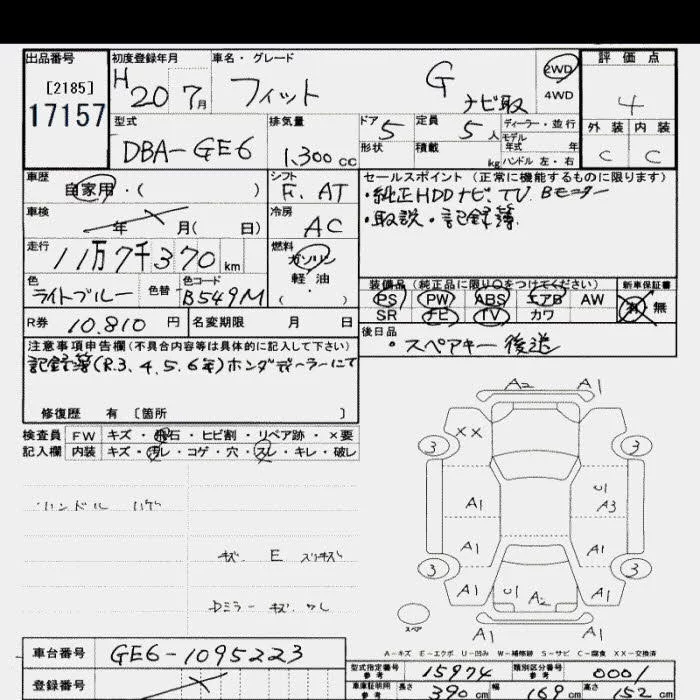 出品番号 初度登録年月 車名・グレード 評価点
[2185]
17157
H 20 7月 フィット G ナビ取 2WD 4WD 4
外装 内装
C C
型式 排気量 ドア 定員 ディーラー・並行
DBA-GE6 1,300cc 5 5人 モデル年式 年
形状 積載 kg ハンドル 左・右
車歴 シフト セールスポイント(正常に機能するものに限ります)
自家用・( ) F. AT ・純正HDDナビ、TV. Bモニター
車検 冷房 ・取説・記録簿
年 月( 日) AC
走行 燃料
11万7千370km ガソリン
軽油
( )
色 色替 色コード
ライトブルー B549M
装備品(純正品に限り〇をつけてください) 新車保証書
PS PW ABS エアB AW 有・無
SR ナビ TV カワ
R券 10,810円 名変期限 月 日
後日品
・スペアキー後送
注意事項申告欄(不具合内容等は具体的に記入して下さい)
記録簿(R.3、4、5、6年)ホンダディーラーにて
修復歴 有 〔箇所 〕
検査員 FW キズ・飛石・ヒビ割・リペア跡・×要
記入欄 内装 キズ・汚レ・コゲ・穴・スレ・キレ・破レ
ハンドル ハゲ
キズ E スリキズ
Dミラー キズ
A2 A1
XX
3 3
A1 U1 A3
A1 A1
3 3
A1 U1 A2 A1
スペア
A1 A1
A-キズ E-エクボ U-凹み W-補修跡 S-サビ C-腐食 XX-交換済
車台番号 GE6-1095223
登録番号
型式指定番号 参考 15974 類別区分番号 参考 0001
車庫証明用 参考 長さ 390cm 幅 169cm 高さ 152cm